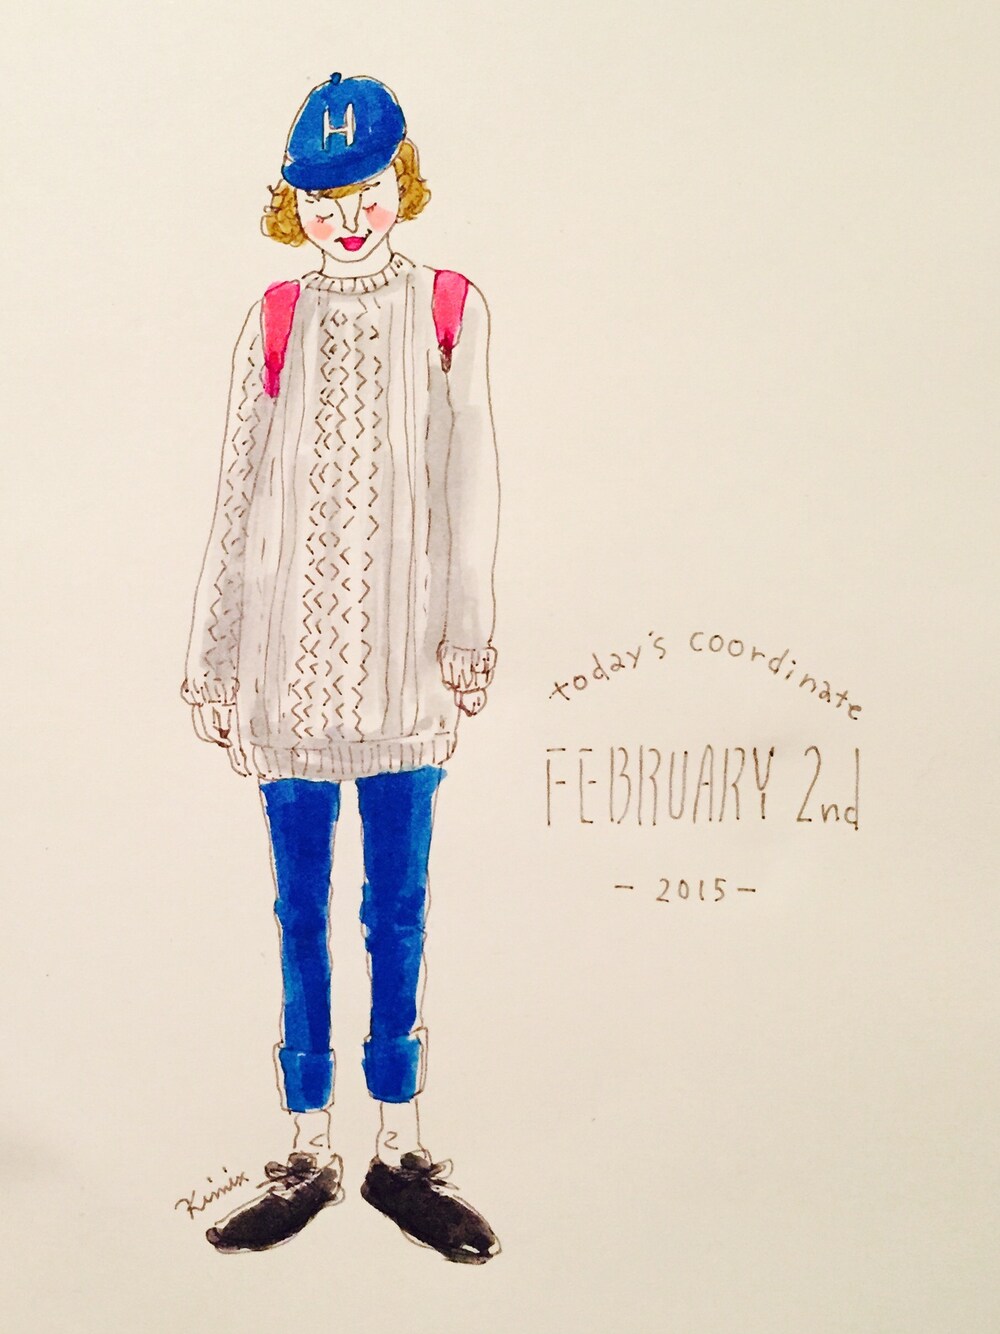 H
today's coordinate
FEBRUARY 2nd
- 2015 -
Kimix